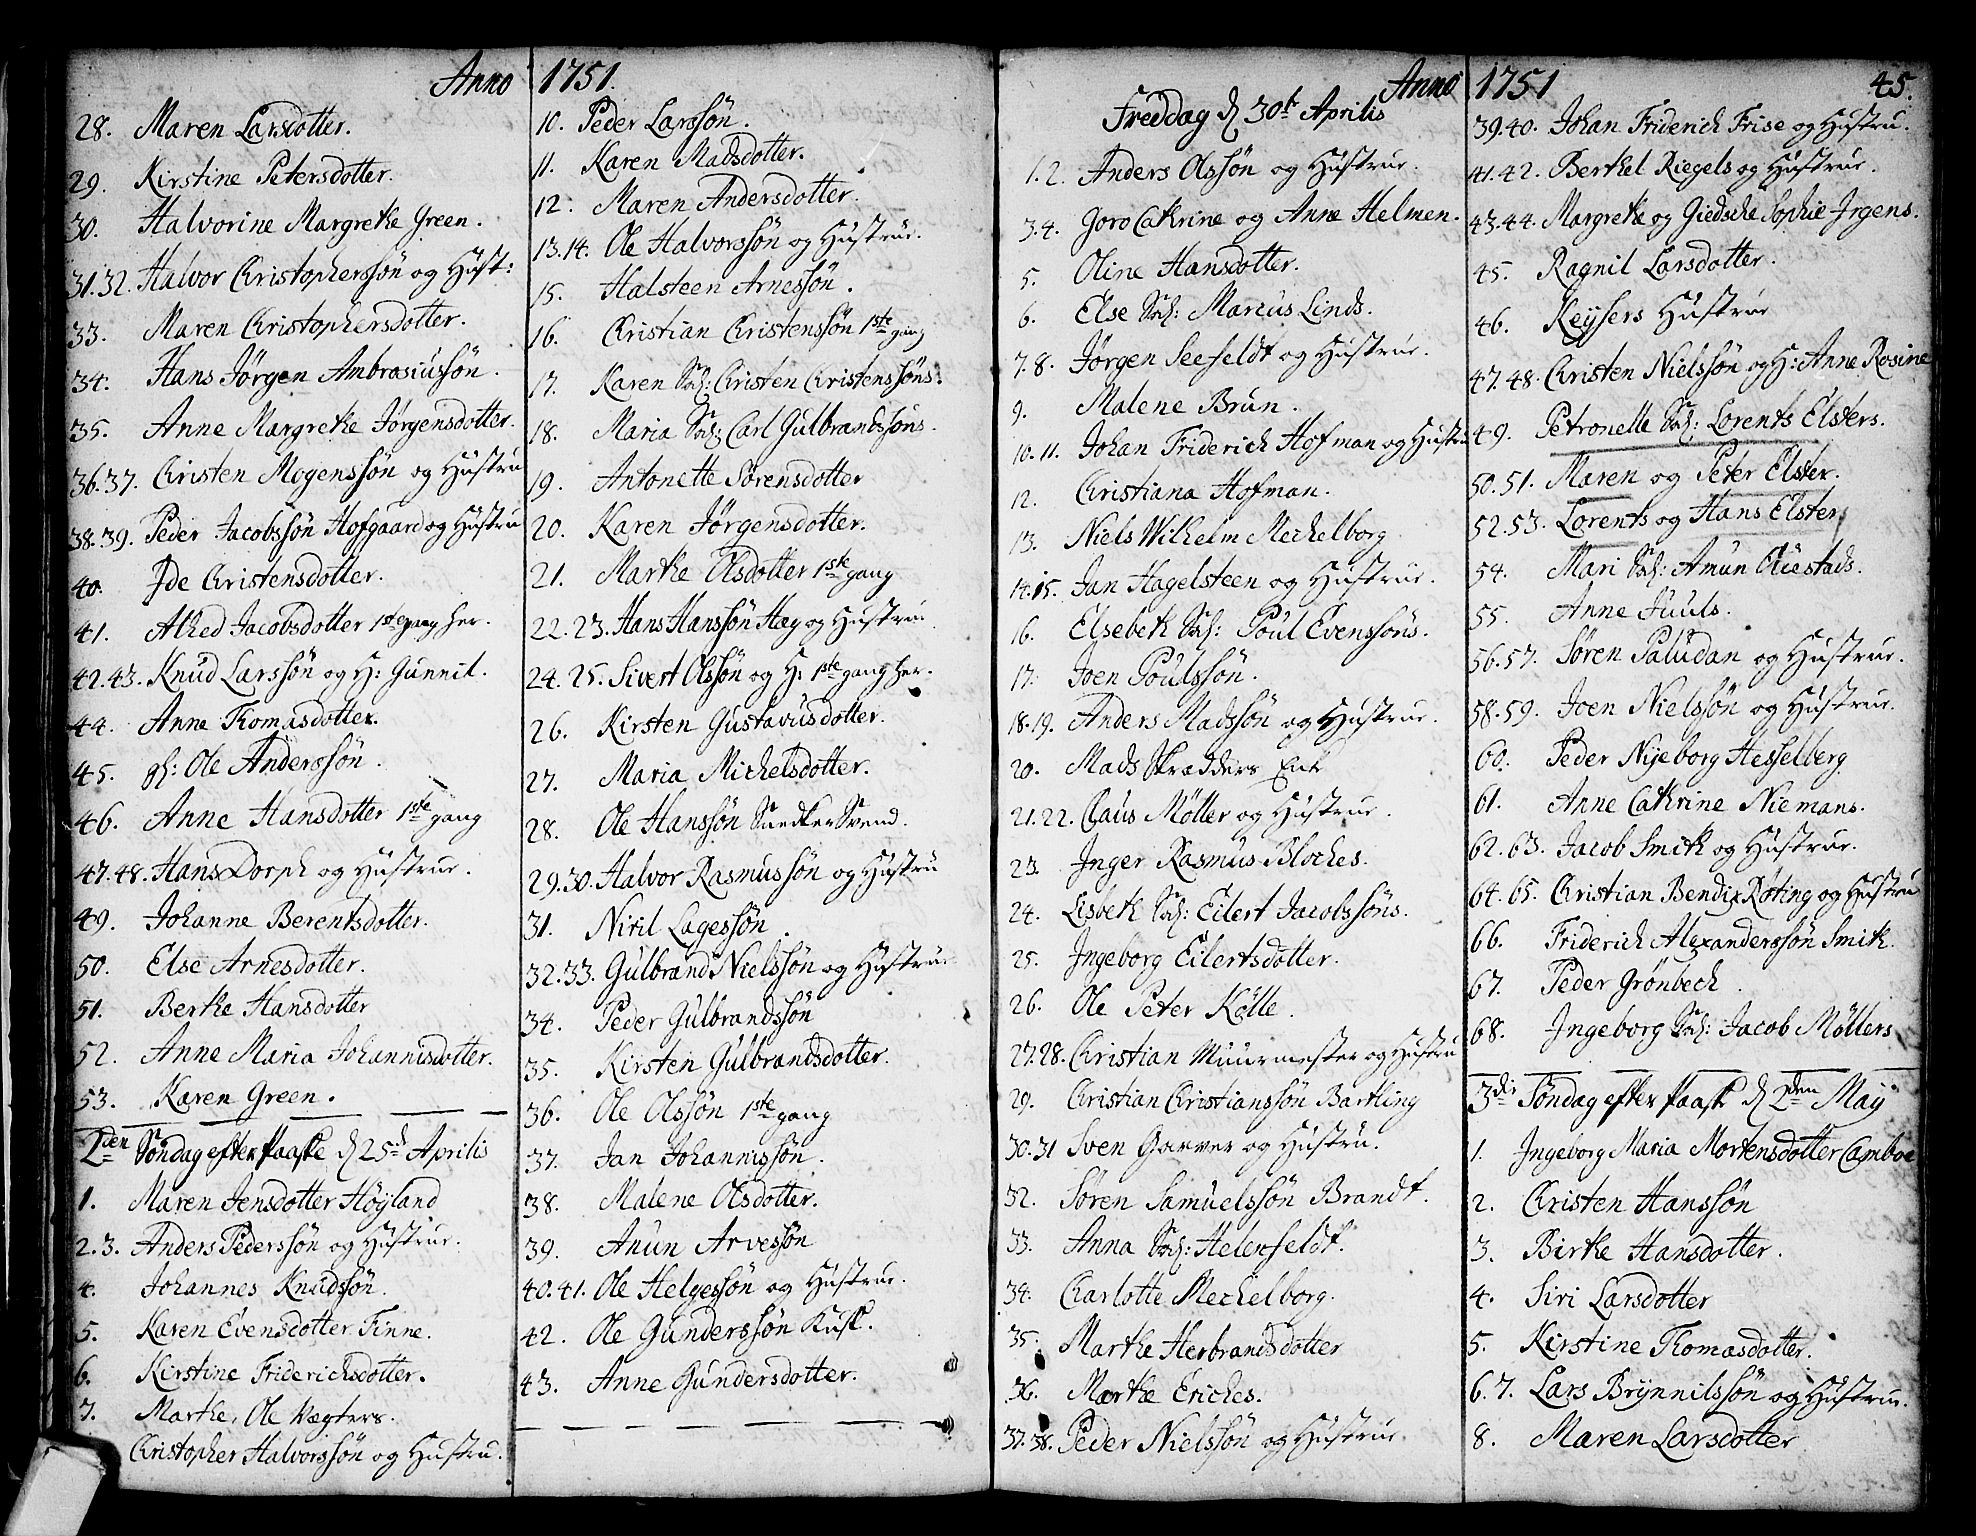 Anno 1751.
28. Maren Larsdotter.
29. Kirstine Petersdotter.
30. Halvorine Margrethe Green.
31.32. Halvor Christopherssøn og Hust:
33. Maren Christophersdotter.
34. Hans Jørgen Ambrosiussøn.
35. Anne Margrethe Jørgensdotter.
36.37. Christen Mogenssøn og Hustru
38.39. Peder Jacobssøn Hofgaard og Hustru
40. Ide Christensdotter.
41. Alhed Jacobsdotter 1ste gang her.
42.43. Knud Larssøn og H: Gunnil.
44. Anne Thomasdotter.
45. gl: Ole Anderssøn.
46. Anne Hansdotter 1ste gang
47.48. Hans Dorph og Hustrue.
49. Johanne Berentsdotter.
50. Else Arnesdotter.
51. Berthe Hansdotter
52. Anne Maria Johannisdotter.
53. Karen Green.
2den Søndag efter Paaske d 25d Aprilis
1. Maren Jensdotter Høyland
2.3. Anders Pederssøn og Hustrue.
4. Johannes Knudssøn.
5. Karen Evensdotter Finne.
6. Kirstine Friderichsdotter.
7. Marthe, Ole Vægters.
Christopher Halvorssøn og Hustru.
10. Peder Larssøn.
11. Karen Madsdotter.
12. Maren Andersdotter.
13.14. Ole Halvorssøn og Hustrue.
15. Halsteen Arnessøn.
16. Christian Christenssøn 1ste gang
17. Karen Sal: Christen Christenssøns.
18. Maria Sal: Carl Gulbrandssøns.
19. Antonette Sørensdotter
20. Karen Jørgensdotter.
21. Marthe Olsdotter 1ste gang
22.23. Hans Hanssøn Hæg og Hustrue
24.25. Sivert Olssøn og H: 1ste gang her.
26. Kirsten Gustavusdotter.
27. Maria Michelsdotter.
28. Ole Hanssøn Snedker Svend.
29.30. Halvor Rasmussøn og Hustru
31. Niril Lagessøn.
32.33. Gulbrand Nielssøn og Hustrue
34. Peder Gulbrandssøn
35. Kirsten Gulbrandsdotter.
36. Ole Olssøn 1ste gang
37. Jan Johannissøn.
38. Malene Olsdotter.
39. Anun Arvessøn
40.41. Ole Helgessøn og Hustrue.
42. Ole Gunderssøn Kusk.
43. Anne Gundersdotter.
Anno 1751 45.
Freddag d 30te Aprilis
1.2. Anders Olssøn og Hustrue.
3.4. Goro Cathrine og Anne Helmen.
5. Oline Hansdotter.
6. Else Sal: Marcus Linds.
7.8. Jørgen Seefeldt og Hustrue.
9. Malene Brun.
10.11. Johan Friderich Hofman og Hustru
12. Christiana Hofman.
13. Niels Wilhelm Mechelborg
14.15. Jan Hagelsteen og Hustrue.
16. Elsebeth Sal: Poul Evenssøns.
17. Joen Poulssøn.
18.19. Anders Madssøn og Hustrue.
20. Mads Skrædders Enke
21.22. Claus Møller og Hustrue.
23. Inger Rasmus Bloches.
24. Lisbeth Sal: Eilert Jacobssøns.
25. Ingeborg Eilertsdotter.
26. Ole Peter Kølle.
27.28. Christian Muurmester og Hustru
29. Christian Christianssøn Bartling
30.31 Sven Garver og Hustru.
32. Søren Samuelssøn Brandt.
33. Anna Sal: Helenfeldt.
34. Charlotte Mechelborg.
35. Marthe Herbrandsdotter
36. Marthe Eriches.
37.38. Peder Nielssøn og Hustrue.
39.40. Johan Friderich Frise og Hustru.
41.42. Berthel Riegels og Hustrue.
43.44. Margrethe og Giedsche Sophie Irgens.
45. Ragnil Larsdotter.
46. Keysers Hustrue
47.48. Christen Nielssøn og H: Anne Rosine
49. Petronelle Sal: Lorents Elsters.
50.51. Maren og Peter Elster.
52.53. Lorents og Hans Elster
54. Mari Sal: Amun Oliestads.
55. Anne Juuls.
56.57. Søren Paludan og Hustrue.
58.59. Joen Nielssøn og Hustrue.
60. Peder Nyeborg Hesselberg
61. Anne Cathrine Niemans.
62.63. Jacob Smith og Hustrue.
64.65. Christian Bendix Røting og Hustrue
66. Friderich Alexanderssøn Smith.
67. Peder Grønbech.
68. Ingeborg Sal: Jacob Møllers
3die Søndag efter Paaske d 2den May
1. Ingeborg Maria Mortensdotter Camboe
2. Christen Hanssøn
3. Birthe Hansdotter.
4. Siri Larsdotter
5. Kirstine Thomasdotter.
6.7. Lars Brynnilssøn og Hustrue.
8. Maren Larsdotter